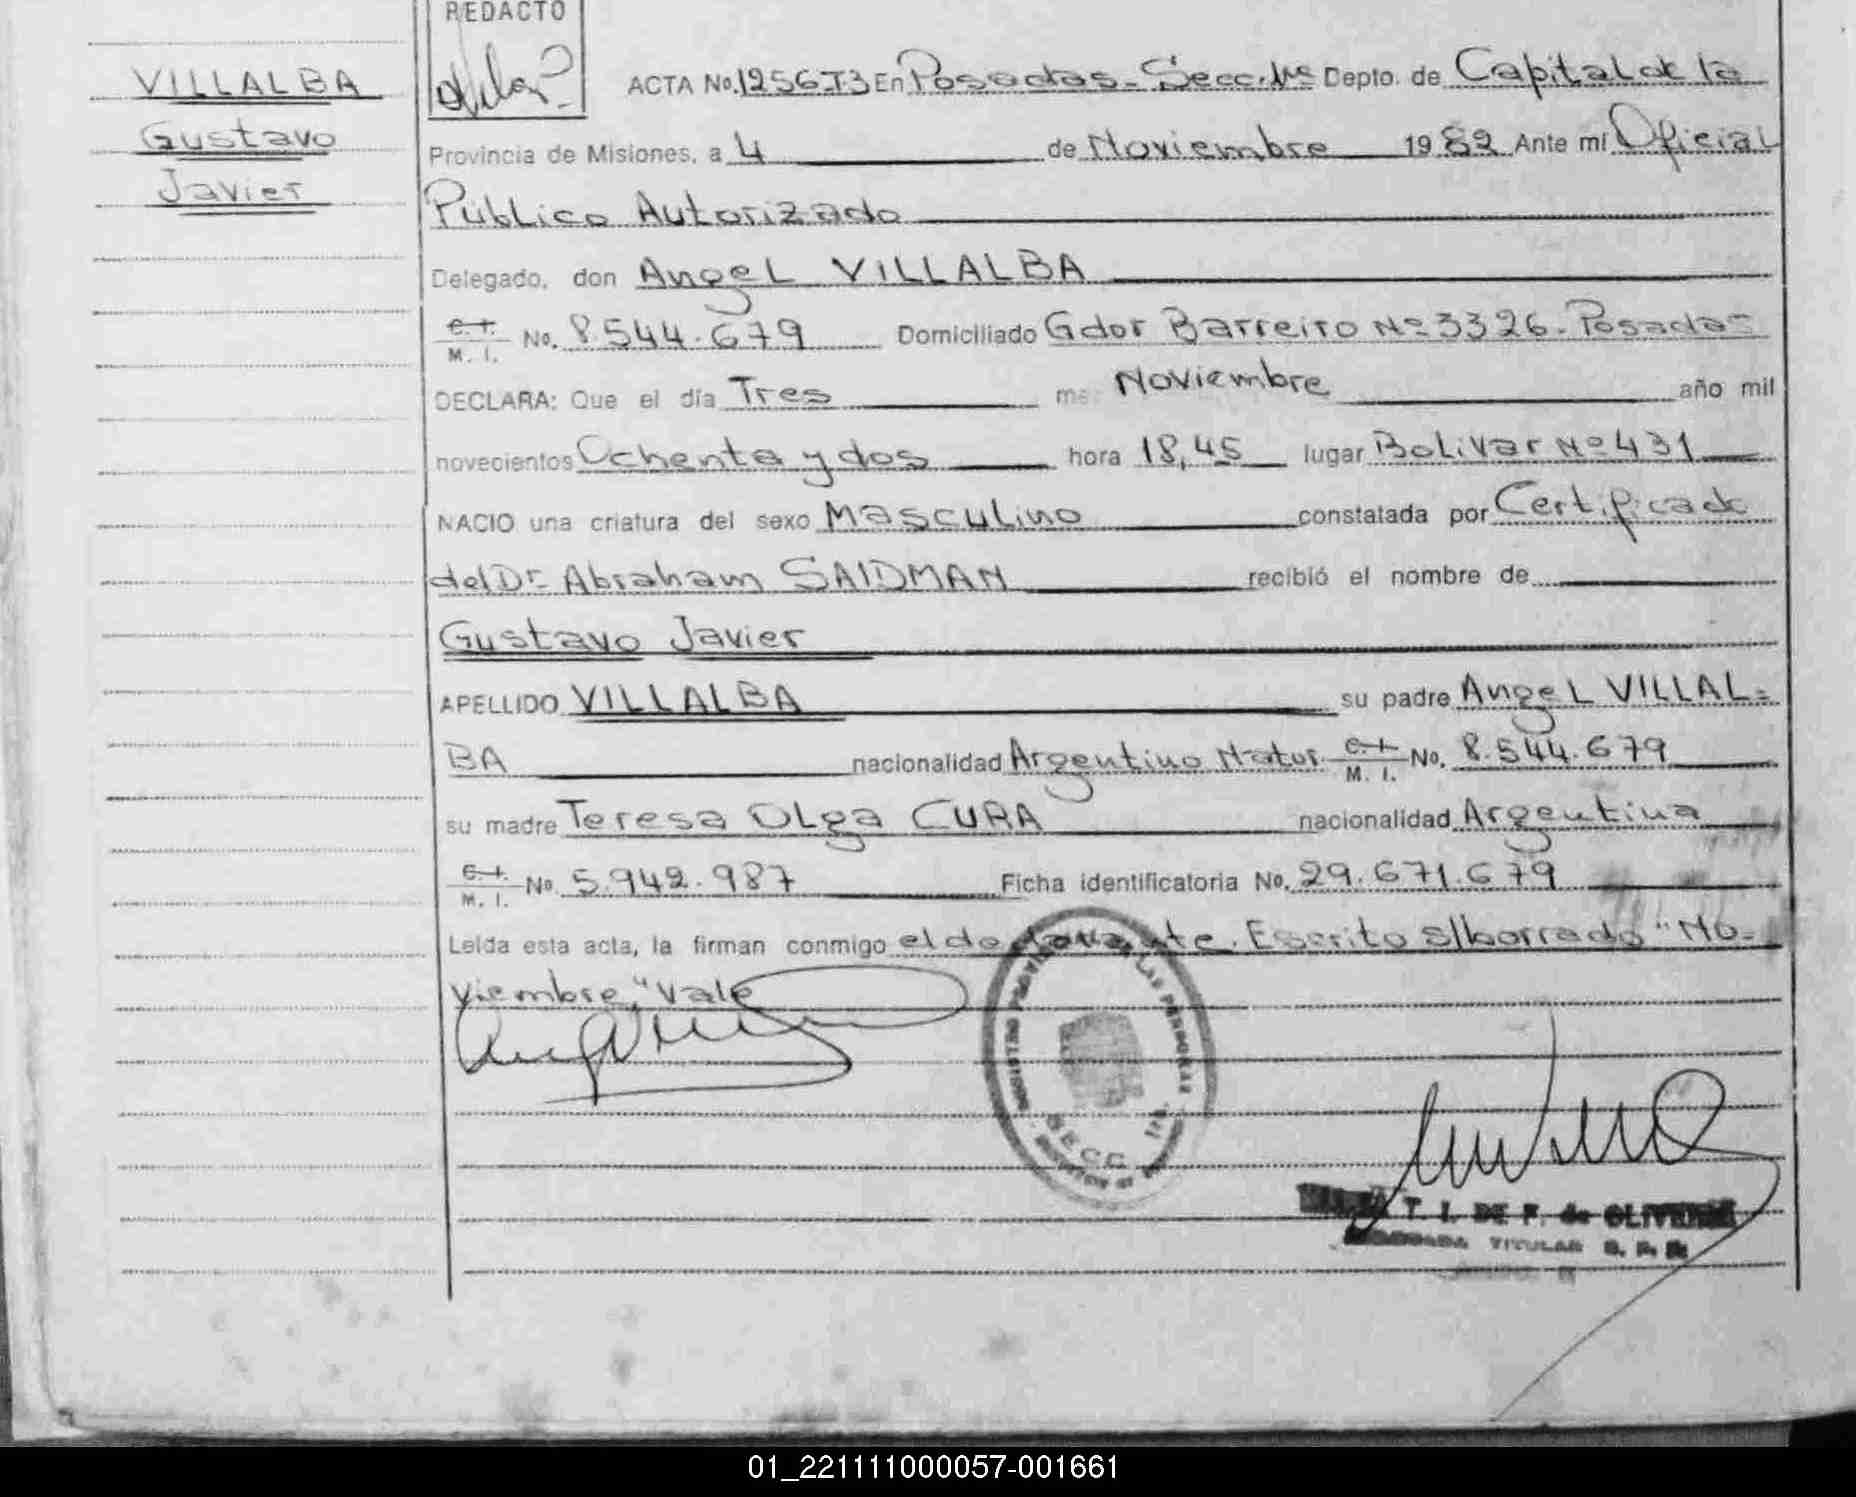 REDACTO
VILLALBA
Gustavo
Javier
ACTA No. 1256 T3 En Posadas - Secc. Depto. de Capital de la
Provincia de Misiones, a 4 de Noviembre 1982 Ante mi Oficial
Público Autorizado
Delegado, don Angel VILLALBA
C. I.
M. I. No. 8.544.679 Domiciliado Gdor Barreiro Nº 3326. Posadas
DECLARA: Que el día Tres Noviembre año mil
novecientos Ochenta y dos hora 18,45 lugar Bolivar Nº 431
NACIO una criatura del sexo Masculino constatada por Certificado
del Dr. Abraham SAIDMAN recibió el nombre de
Gustavo Javier
APELLIDO VILLALBA su padre Angel VILLAL=
BA nacionalidad Argentino Natur. C. I. M. I. No. 8.544.679
su madre Teresa Olga CURA nacionalidad Argentina
C. I.
M. I. No. 5.942.987 Ficha identificatoria No. 29.671.679
Leída esta acta, la firman conmigo el declarante. Escrito s/borrado "No-
viembre," Vale
SECC.
T. I. DE F. de OLIVEIRA
TITULAR
01_221111000057-001661